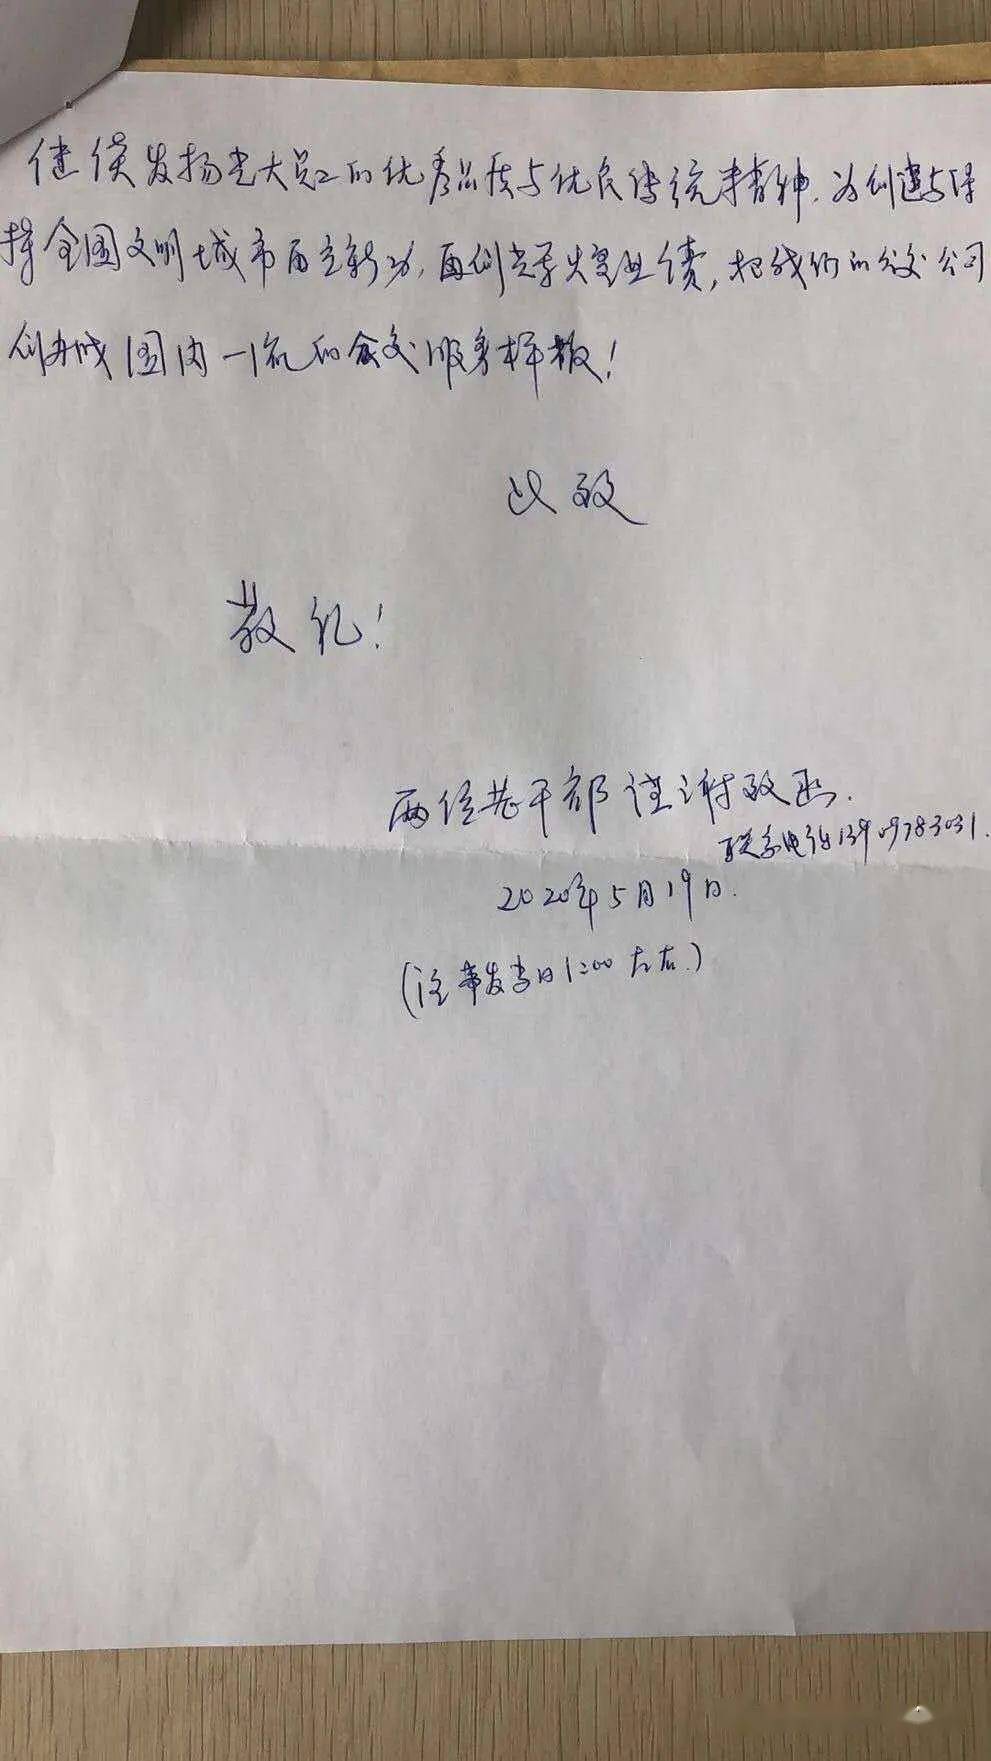 继续发扬光大员工的优秀品质与优良传统精神，为创建与保
持全国文明城市再立新功，再创光荣业绩，把我们的公交公司
创办成国内一流的公交服务样板！
此致
敬礼！
两位老干部谨谢致函.
联系电话13909783031.
2020年5月19日.
(注事发当日1:00左右.)